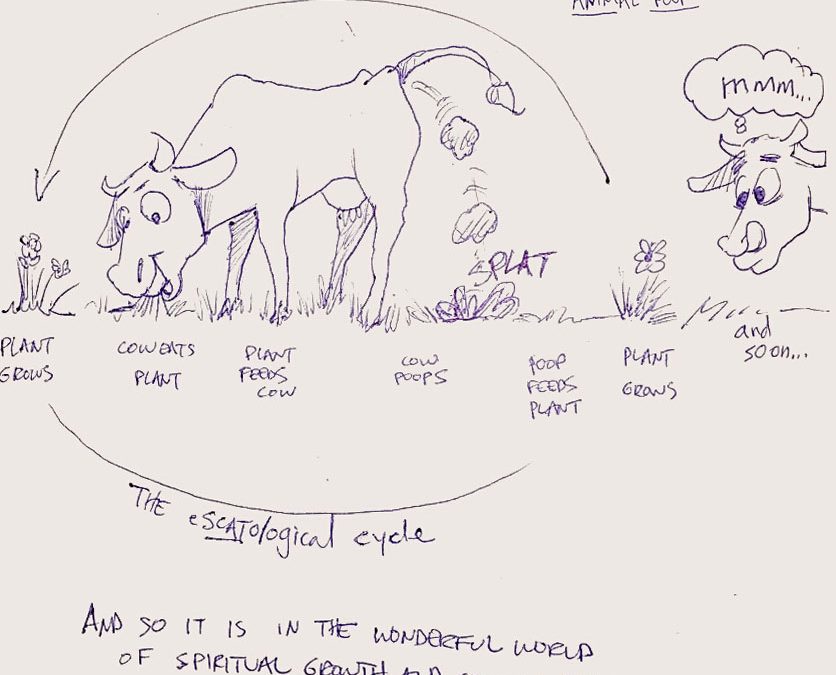 ANIMAL POOP
mmm...
SPLAT
PLANT
GROWS
COW EATS
PLANT
PLANT
FEEDS
COW
COW
POOPS
POOP
FEEDS
PLANT
PLANT
GROWS
and
so on...
THE eSCATological cycle
AND SO IT IS IN THE WONDERFUL WORLD
OF SPIRITUAL GROWTH AND